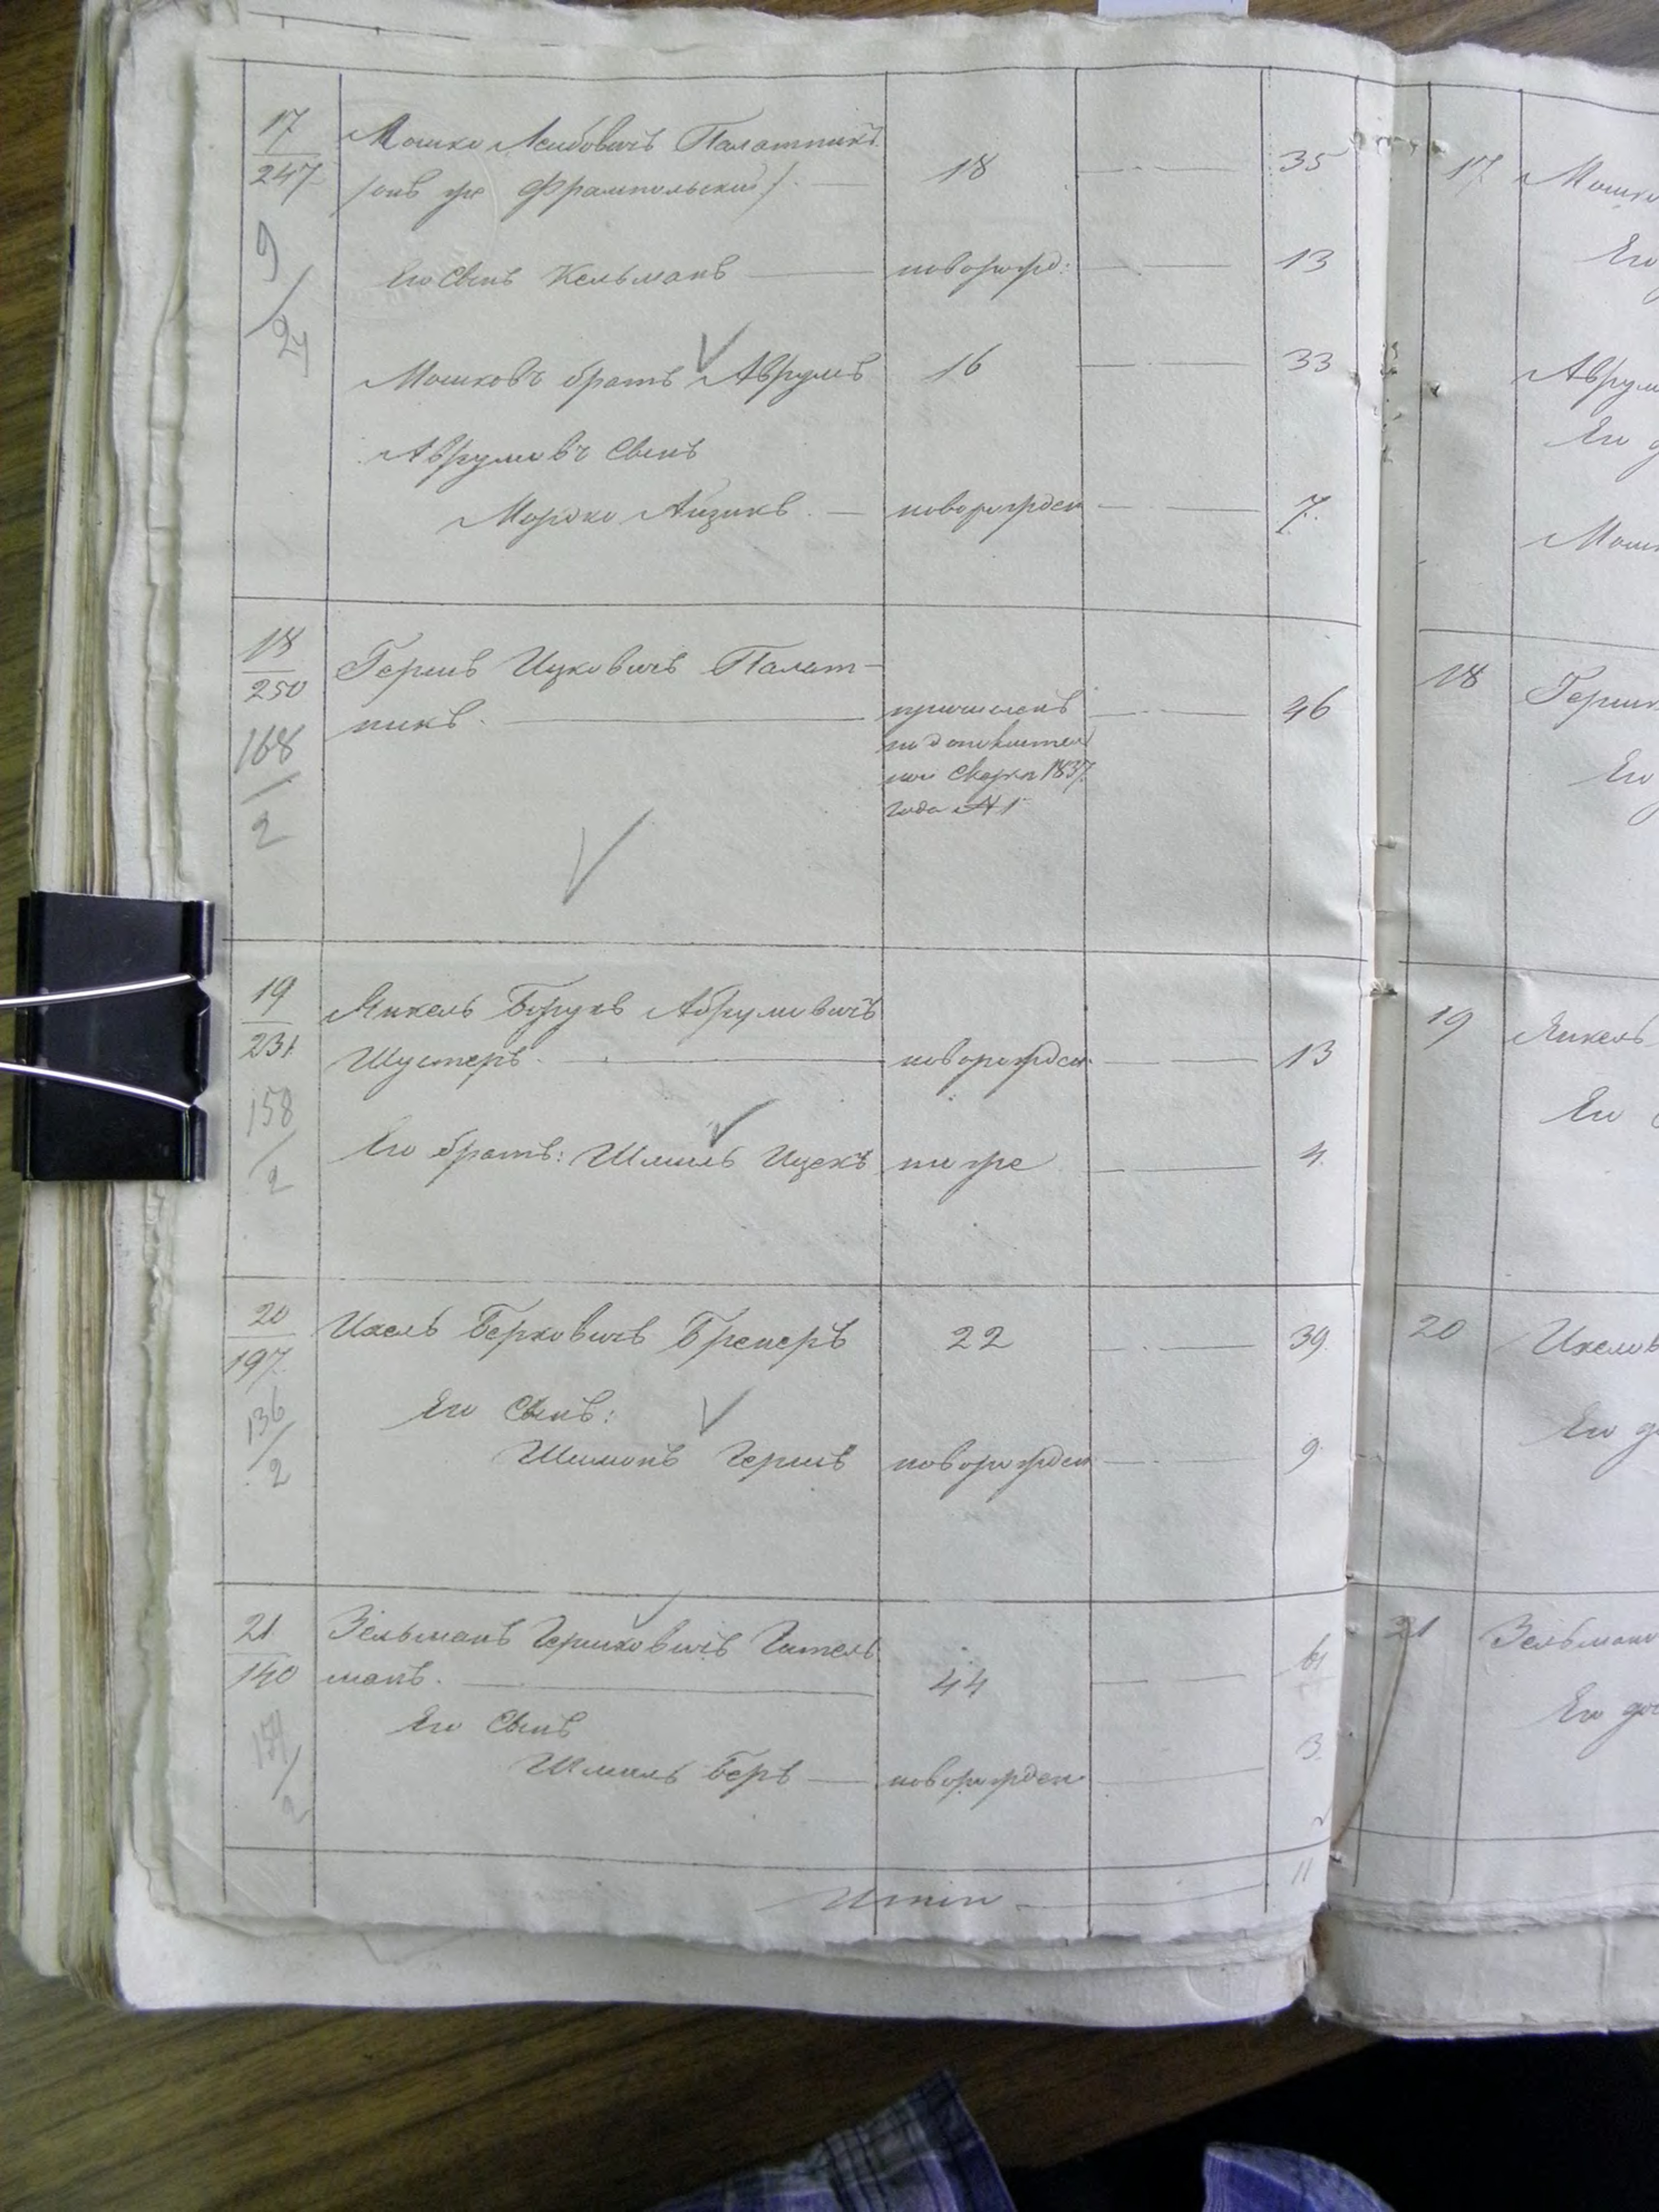 17
247
9
24
Мошко Лейбовичъ Палатникъ
/онъ же Фрампольский/. 18 35
Его Сынъ Кельманъ новорожд: 13
Мошковъ братъ Аврумъ 16 33
Аврумовъ Сынъ
Мордко Айзикъ. новорожден 7.
18
250
168
2
Гершъ Ицковичъ Палат-
никъ. 46
причисленъ
по дополнитель
ной Сказки 1837.
года №1
19
231.
158
2
Янкель Борухъ Аврумовичъ
Шустеръ. новорожден. 13
Его братъ: Шмиль Ицекъ то же 4.
20
197.
136
2
Ихель Берковичъ Бренеръ 22 39.
Его Сынъ:
Шимонъ Гершъ новорожден 9.
21.
140
154
2
Зельманъ Гершковичъ Гитель
манъ. 44 61
Его Сынъ
Шмиль Беръ новорожден 3.
Итого 11
17. Мошк
Его
Аврум
Его
Мошк
18 Герш
Его
19 Янкель
Его
20 Ихель
Его
21 Зельман
Его доч